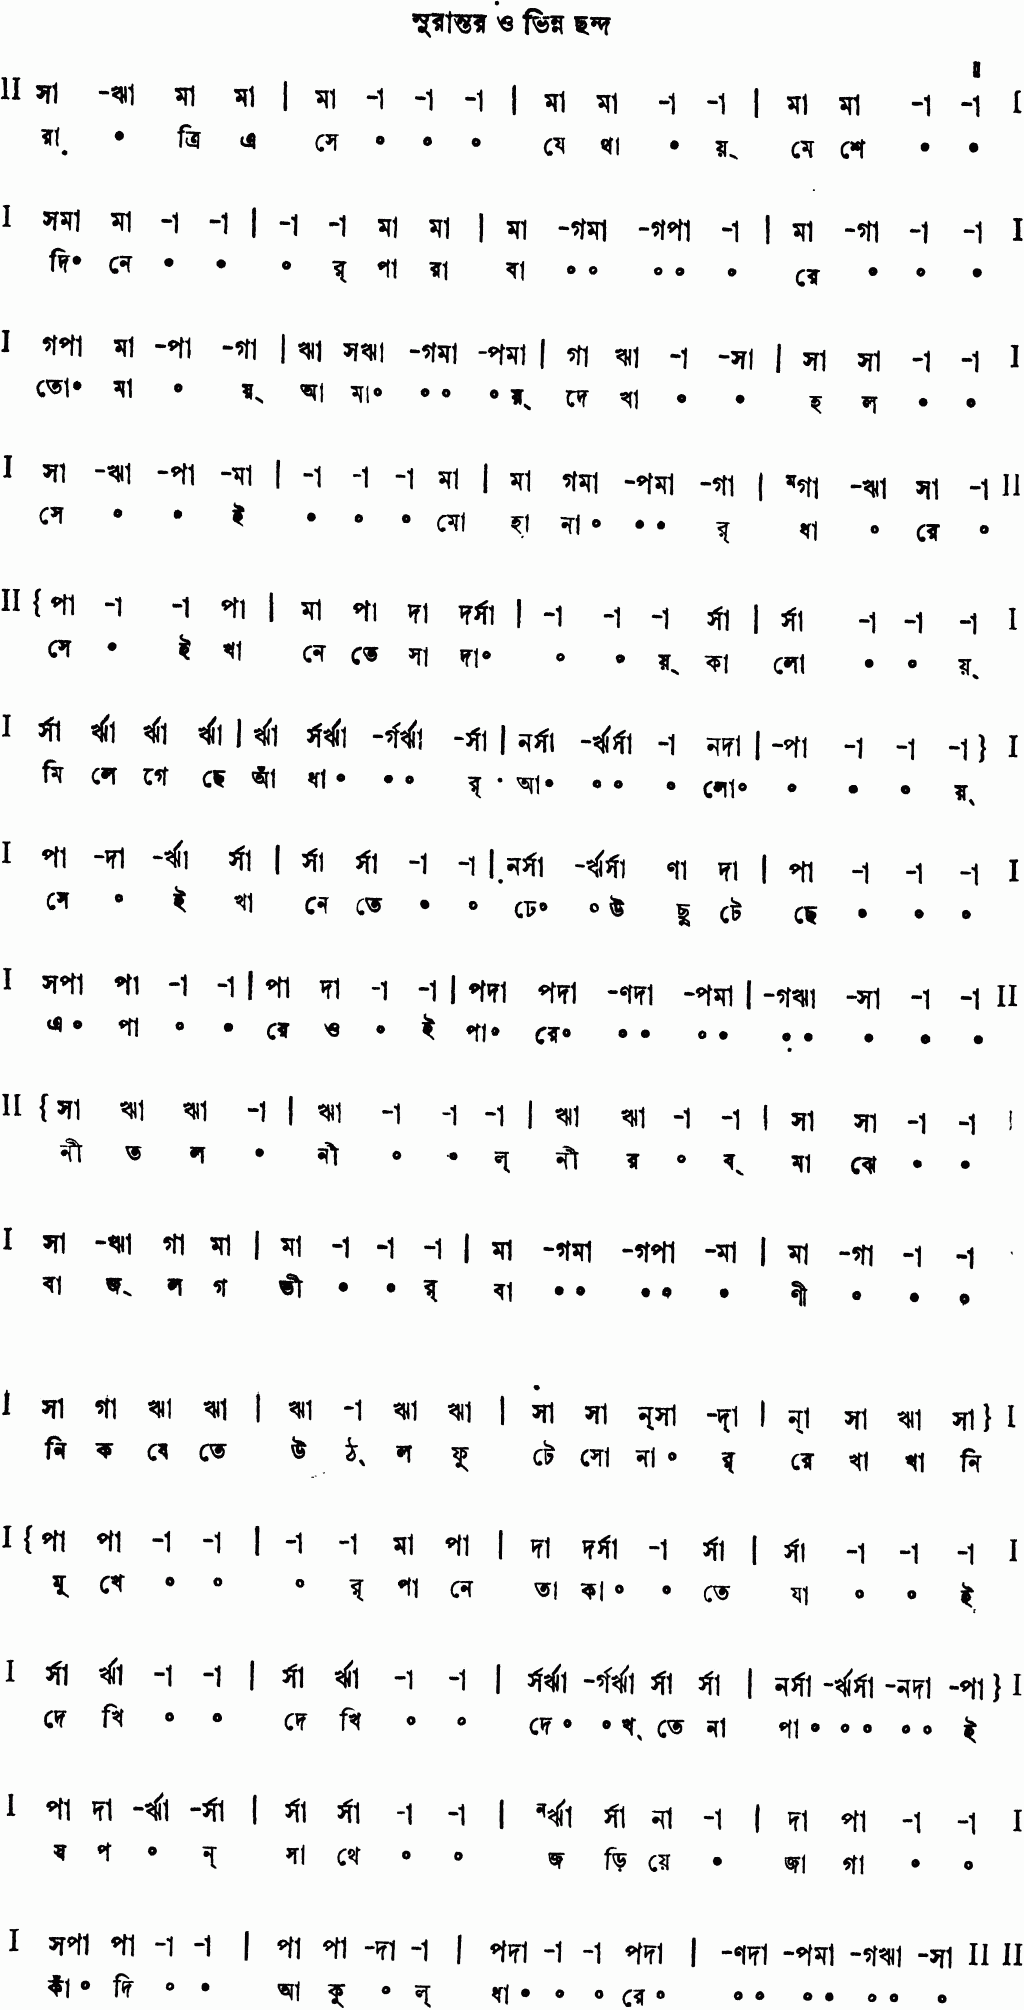 সুরান্তর ও ভিন্ন ছন্দ
II সা -ঋা মা মা | মা -া -া -া | মা মা -া -া | মা মা -া -া I
রা ॰ ত্রি এ সে ॰ ॰ ॰ যে থা ॰ য়্ মে শে ॰ ॰
I সমা মা -া -া | -া -া মা মা | মা -গমা -গপা -া | মা -গা -া -া I
দি॰ নে ॰ ॰ ॰ র্ পা রা বা ॰ ॰ ॰ ॰ ॰ রে ॰ ॰ ॰
I গপা মা -পা -গা | ঋা সঋা -গমা -পমা | গা ঋা -া -সা | সা সা -া -া I
তো॰ মা ॰ য়্ আ মা॰ ॰ ॰ ॰ র্ দে খা ॰ ॰ হ ল ॰ ॰
I সা -ঋা -পা -মা | -া -া -া মা | মা গমা -পমা -গা | ᵐগা -ঋা সা -া II
সে ॰ ॰ ই ॰ ॰ ॰ মো হা না॰ ॰ ॰ র্ ধা ॰ রে ॰
II { পা -া -া পা | মা পা দা দর্সা | -া -া -া র্সা | র্সা -া -া -া I
সে ॰ ই খা নে তে সা দা॰ ॰ ॰ য়্ কা লো ॰ ॰ য়্
I র্সা র্ঋা র্ঋা র্ঋা | র্ঋা র্সর্ঋা -র্গর্ঋা -র্সা | নর্সা -র্ঋর্সা -া নদা | -পা -া -া -া } I
মি লে গে ছে আঁ ধা॰ ॰ ॰ র্ আ॰ ॰ ॰ ॰ লো॰ ॰ ॰ ॰ য়্
I পা -দা -র্ঋা র্সা | র্সা র্সা -া -া | নর্সা -র্ঋর্সা ণা দা | পা -া -া -া I
সে ॰ ই খা নে তে ॰ ॰ ঢে॰ ॰ উ ছু টে ছে ॰ ॰ ॰
I সপা পা -া -া | পা দা -া -া | পদা পদা -ণদা -পমা | -গঋা -সা -া -া II
এ॰ পা ॰ ॰ রে ও ॰ ই পা॰ রে॰ ॰ ॰ ॰ ॰ ॰ ॰ ॰ ॰ ॰
II { সা ঋা ঋা -া | ঋা -া -া -া | ঋা ঋা -া -া | সা সা -া -া I
নী ত ল ॰ নী ॰ ॰ ল্ নী র ॰ ব্ মা ঝে ॰ ॰
I সা -ঋা গা মা | মা -া -া -া | মা -গমা -গপা -মা | মা -গা -া -া
বা জ্ ল গ ভী ॰ ॰ র্ বা ॰ ॰ ॰ ॰ ॰ ণী ॰ ॰ ॰
I সা গা ঋা ঋা | ঋা -া ঋা ঋা | সা সা ন্সা -দ্া | ন্া সা ঋা সা } I
নি ক ষে তে উ ঠ্ ল ফু টে সো না॰ র্ রে খা খা নি
I { পা পা -া -া | -া -া মা পা | দা দর্সা -া র্সা | র্সা -া -া -া I
মু খে ॰ ॰ ॰ র্ পা নে তা কা॰ ॰ তে যা ॰ ॰ ই
I র্সা র্ঋা -া -া | র্সা র্ঋা -া -া | র্সর্ঋা -র্গর্ঋা র্সা র্সা | নর্সা -র্ঋর্সা -নদা -পা } I
দে খি ॰ ॰ দে খি ॰ ॰ দে॰ ॰ খ্ তে না পা॰ ॰ ॰ ॰ ॰ ই
I পা দা -র্ঋা -র্সা | র্সা র্সা -া -া | ᶰর্ঋা র্সা না -া | দা পা -া -া I
স্ব প ॰ ন্ সা থে ॰ ॰ জ ড়ি য়ে ॰ জা গা ॰ ॰
I সপা পা -া -া | পা পা -দা -া | পদা -া -া পদা | -ণদা -পমা -গঋা -সা II II
কাঁ॰ দি ॰ ॰ আ কু ॰ ল্ ধা॰ ॰ ॰ রে॰ ॰ ॰ ॰ ॰ ॰ ॰ ॰